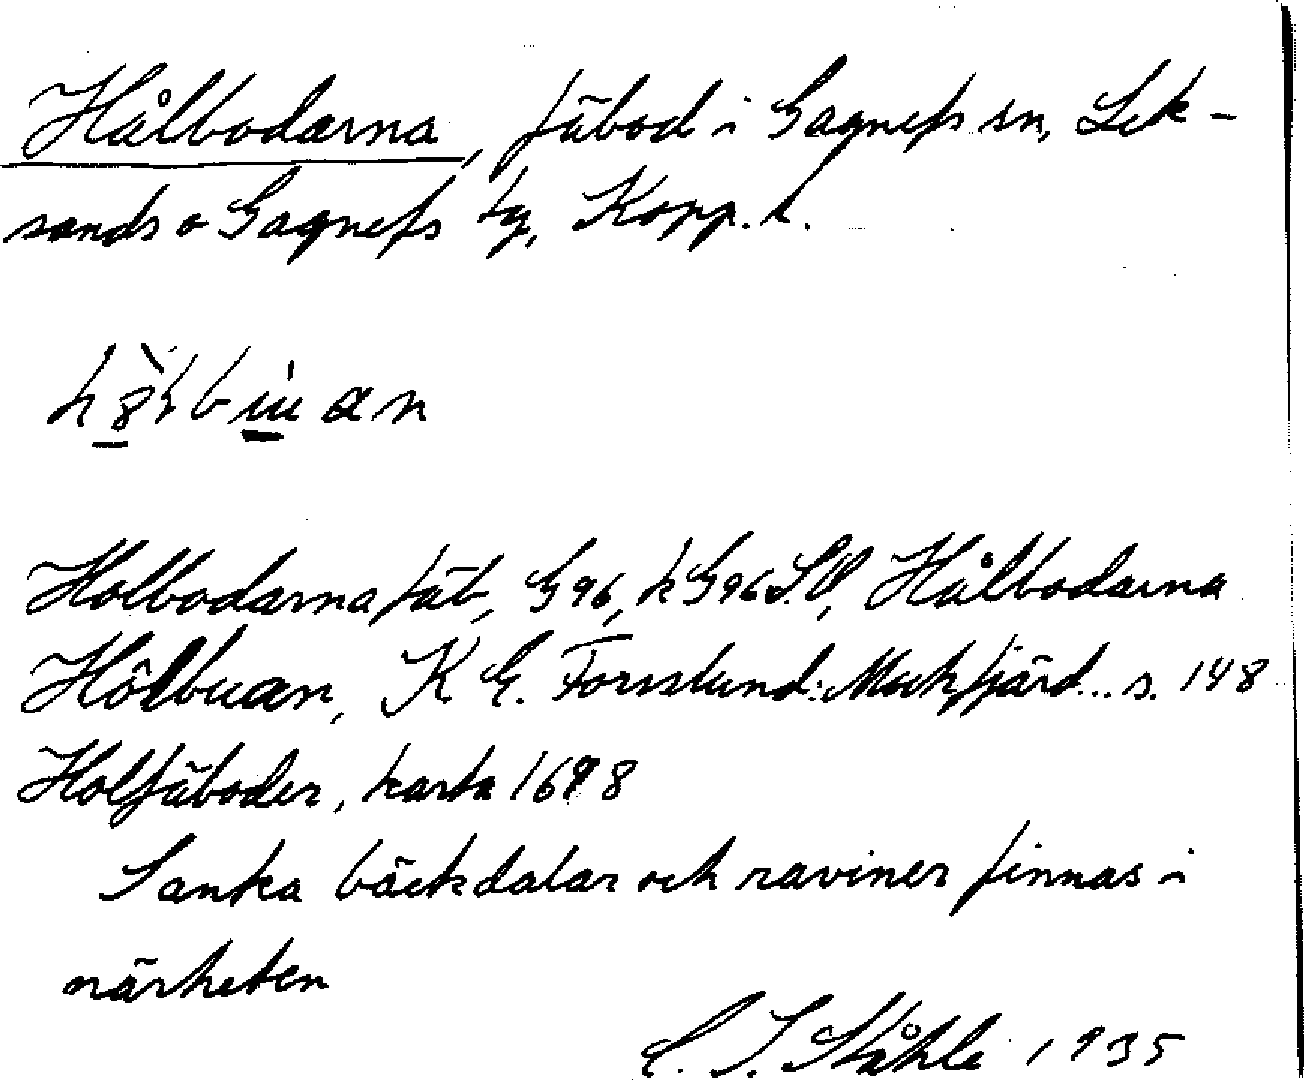 Hålbodarna, fäbod i Gagnefs sn, Lek-
sands o Gagnefs tg, Kopp. l.
Holbodarna fäb, G96, k G96 S.V., Hålbodarna
Hôlbuan, K E. Forsslund: Mockfjärd... s. 148
Holfäboder, karta 1698
Sanka bäckdalar och raviner finnas i
närheten
C. I. Ståhle 1935